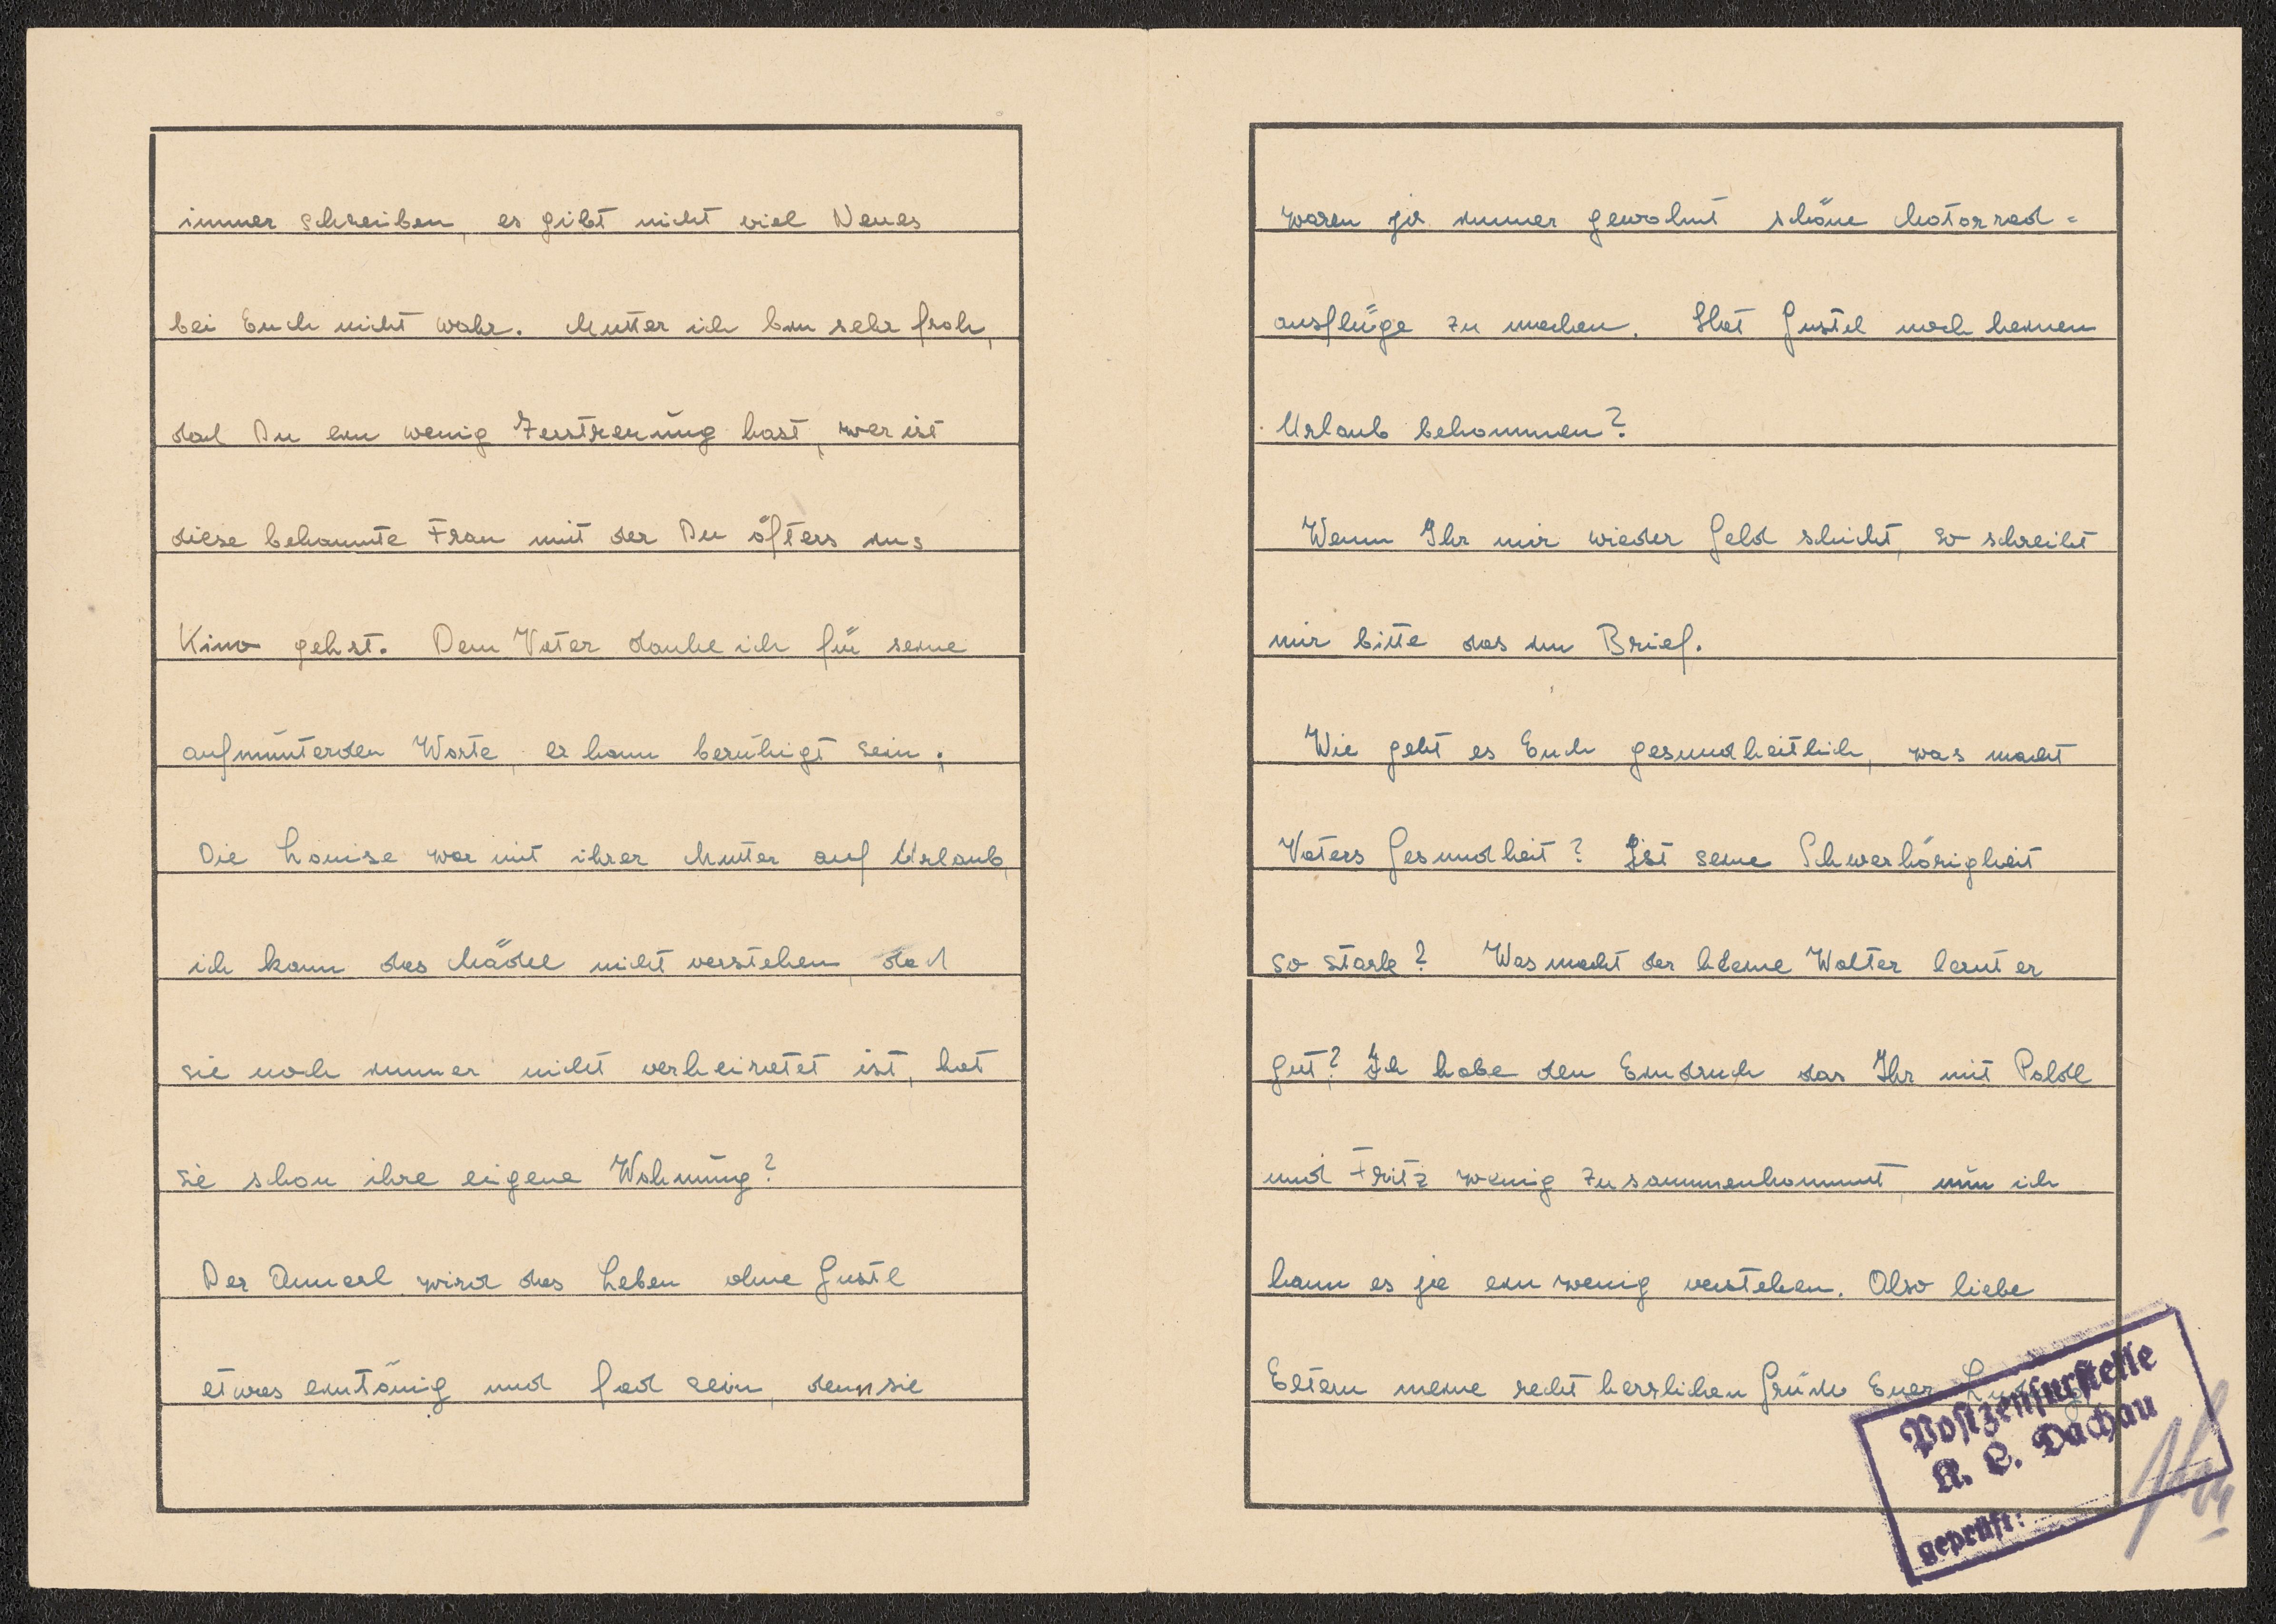 immer schreiben, es gibt nicht viel Neues
bei Euch nicht wahr. Mutter ich bin sehr froh,
daß Du ein wenig Zerstreuung hast, wer ist
diese bekannte Frau mit der Du öfters ins
Kino gehst. Dem Vater danke ich für seine
aufmunterden Worte, er kann beruhigt sein.
Die Louise war mit ihrer Mutter auf Urlaub,
ich kann das Mädel nicht verstehen, daß
sie noch immer nicht verheiratet ist, hat
sie schon ihre eigene Wohnung?
Der Annerl wird das Leben ohne Gustl
etwas eintönig und fad sein, denn sie
waren ja immer gewohnt schöne Motorrad=
ausflüge zu machen. Hat Gustel noch keinen
Urlaub bekommen?
Wenn Ihr mir wieder Geld schickt, so schreibt
mir bitte das im Brief.
Wie geht es Euch gesundheitlich, was macht
Vaters Gesundheit? Ist seine Schwerhörigkeit
so stark? Was macht der kleine Walter lernt er
gut? Ich habe den Eindruck das Ihr mit Poldl
und Fritz wenig zusammenkommt, nun ich
kann es ja ein wenig verstehen. Also liebe
Eltern meine recht herzlichen Grüße Euer
Postzensurstelle
K. L. Dachau
geprüft: